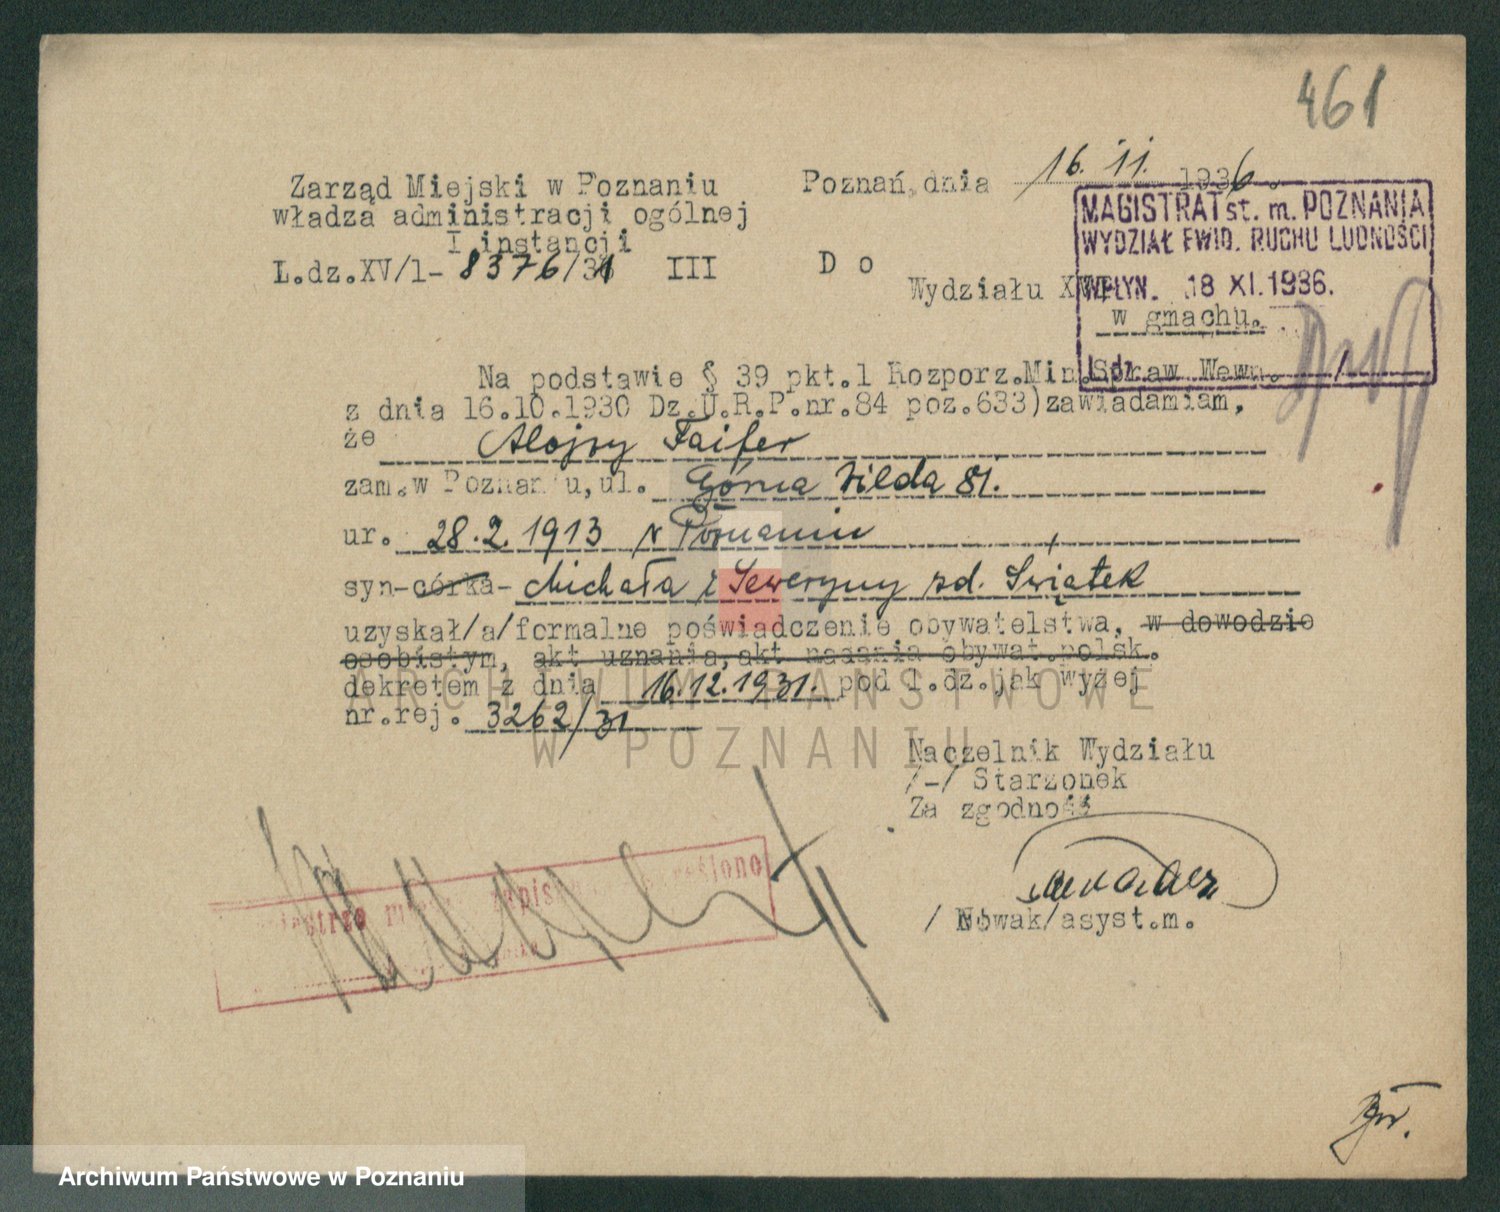 461
Zarząd Miejski w Poznaniu
władza administracji ogólnej
I instancji
L.dz.XV/1- 8376/31 III
Poznań, dnia 16. 11. 1936.
MAGISTRAT st. m. POZNANIA
WYDZIAŁ EWID. RUCHU LUDNOŚCI
WPŁYN. 18 XI. 1936.
L. dz.
D o
Wydziału
w gmachu.
Na podstawie § 39 pkt.1 Rozporz.Min.Spraw Wewn.
z dnia 16.10.1930 Dz.U.R.P.nr.84 poz.633)zawiadamiam,
że Alojzy Faifer
zam.w Poznaniu,ul. Górna Wilda 81.
ur. 28.2.1913 w Poznaniu
syn-córka- Michała i Seweryny zd. Świątek
uzyskał/a/formalne poświadczenie obywatelstwa, w dowodzie
osobistym, akt uznania,akt nadania obywat.polsk.
dekretem z dnia 16.12.1931. pod l.dz.jak wyżej
nr.rej. 3262/31
ARCHIWUM PAŃSTWOWE
W POZNANIU
Naczelnik Wydziału
/-/ Starzonek
Za zgodność
/ Nowak/asyst.m.
Archiwum Państwowe w Poznaniu